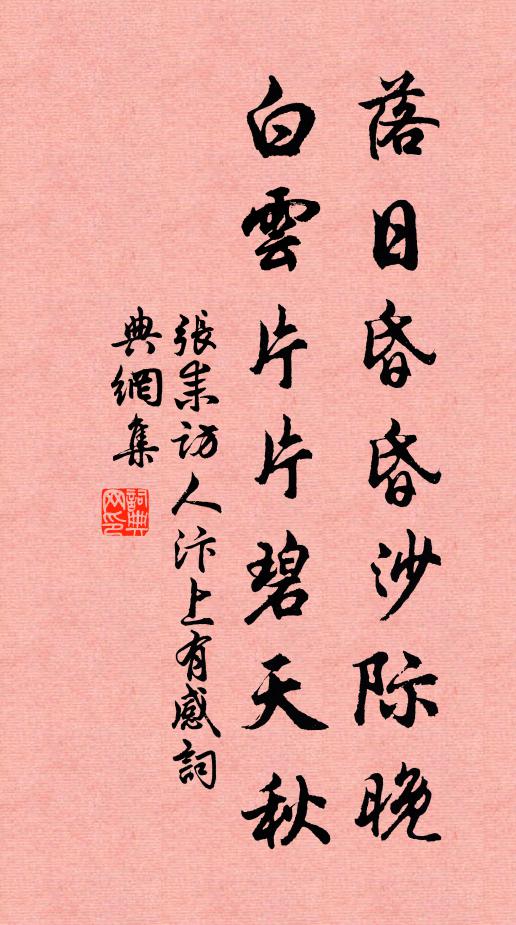 落日昏昏沙际晚
白雲片片碧天秋
張耒訪人汴上有感詞
典網集
詞典网印